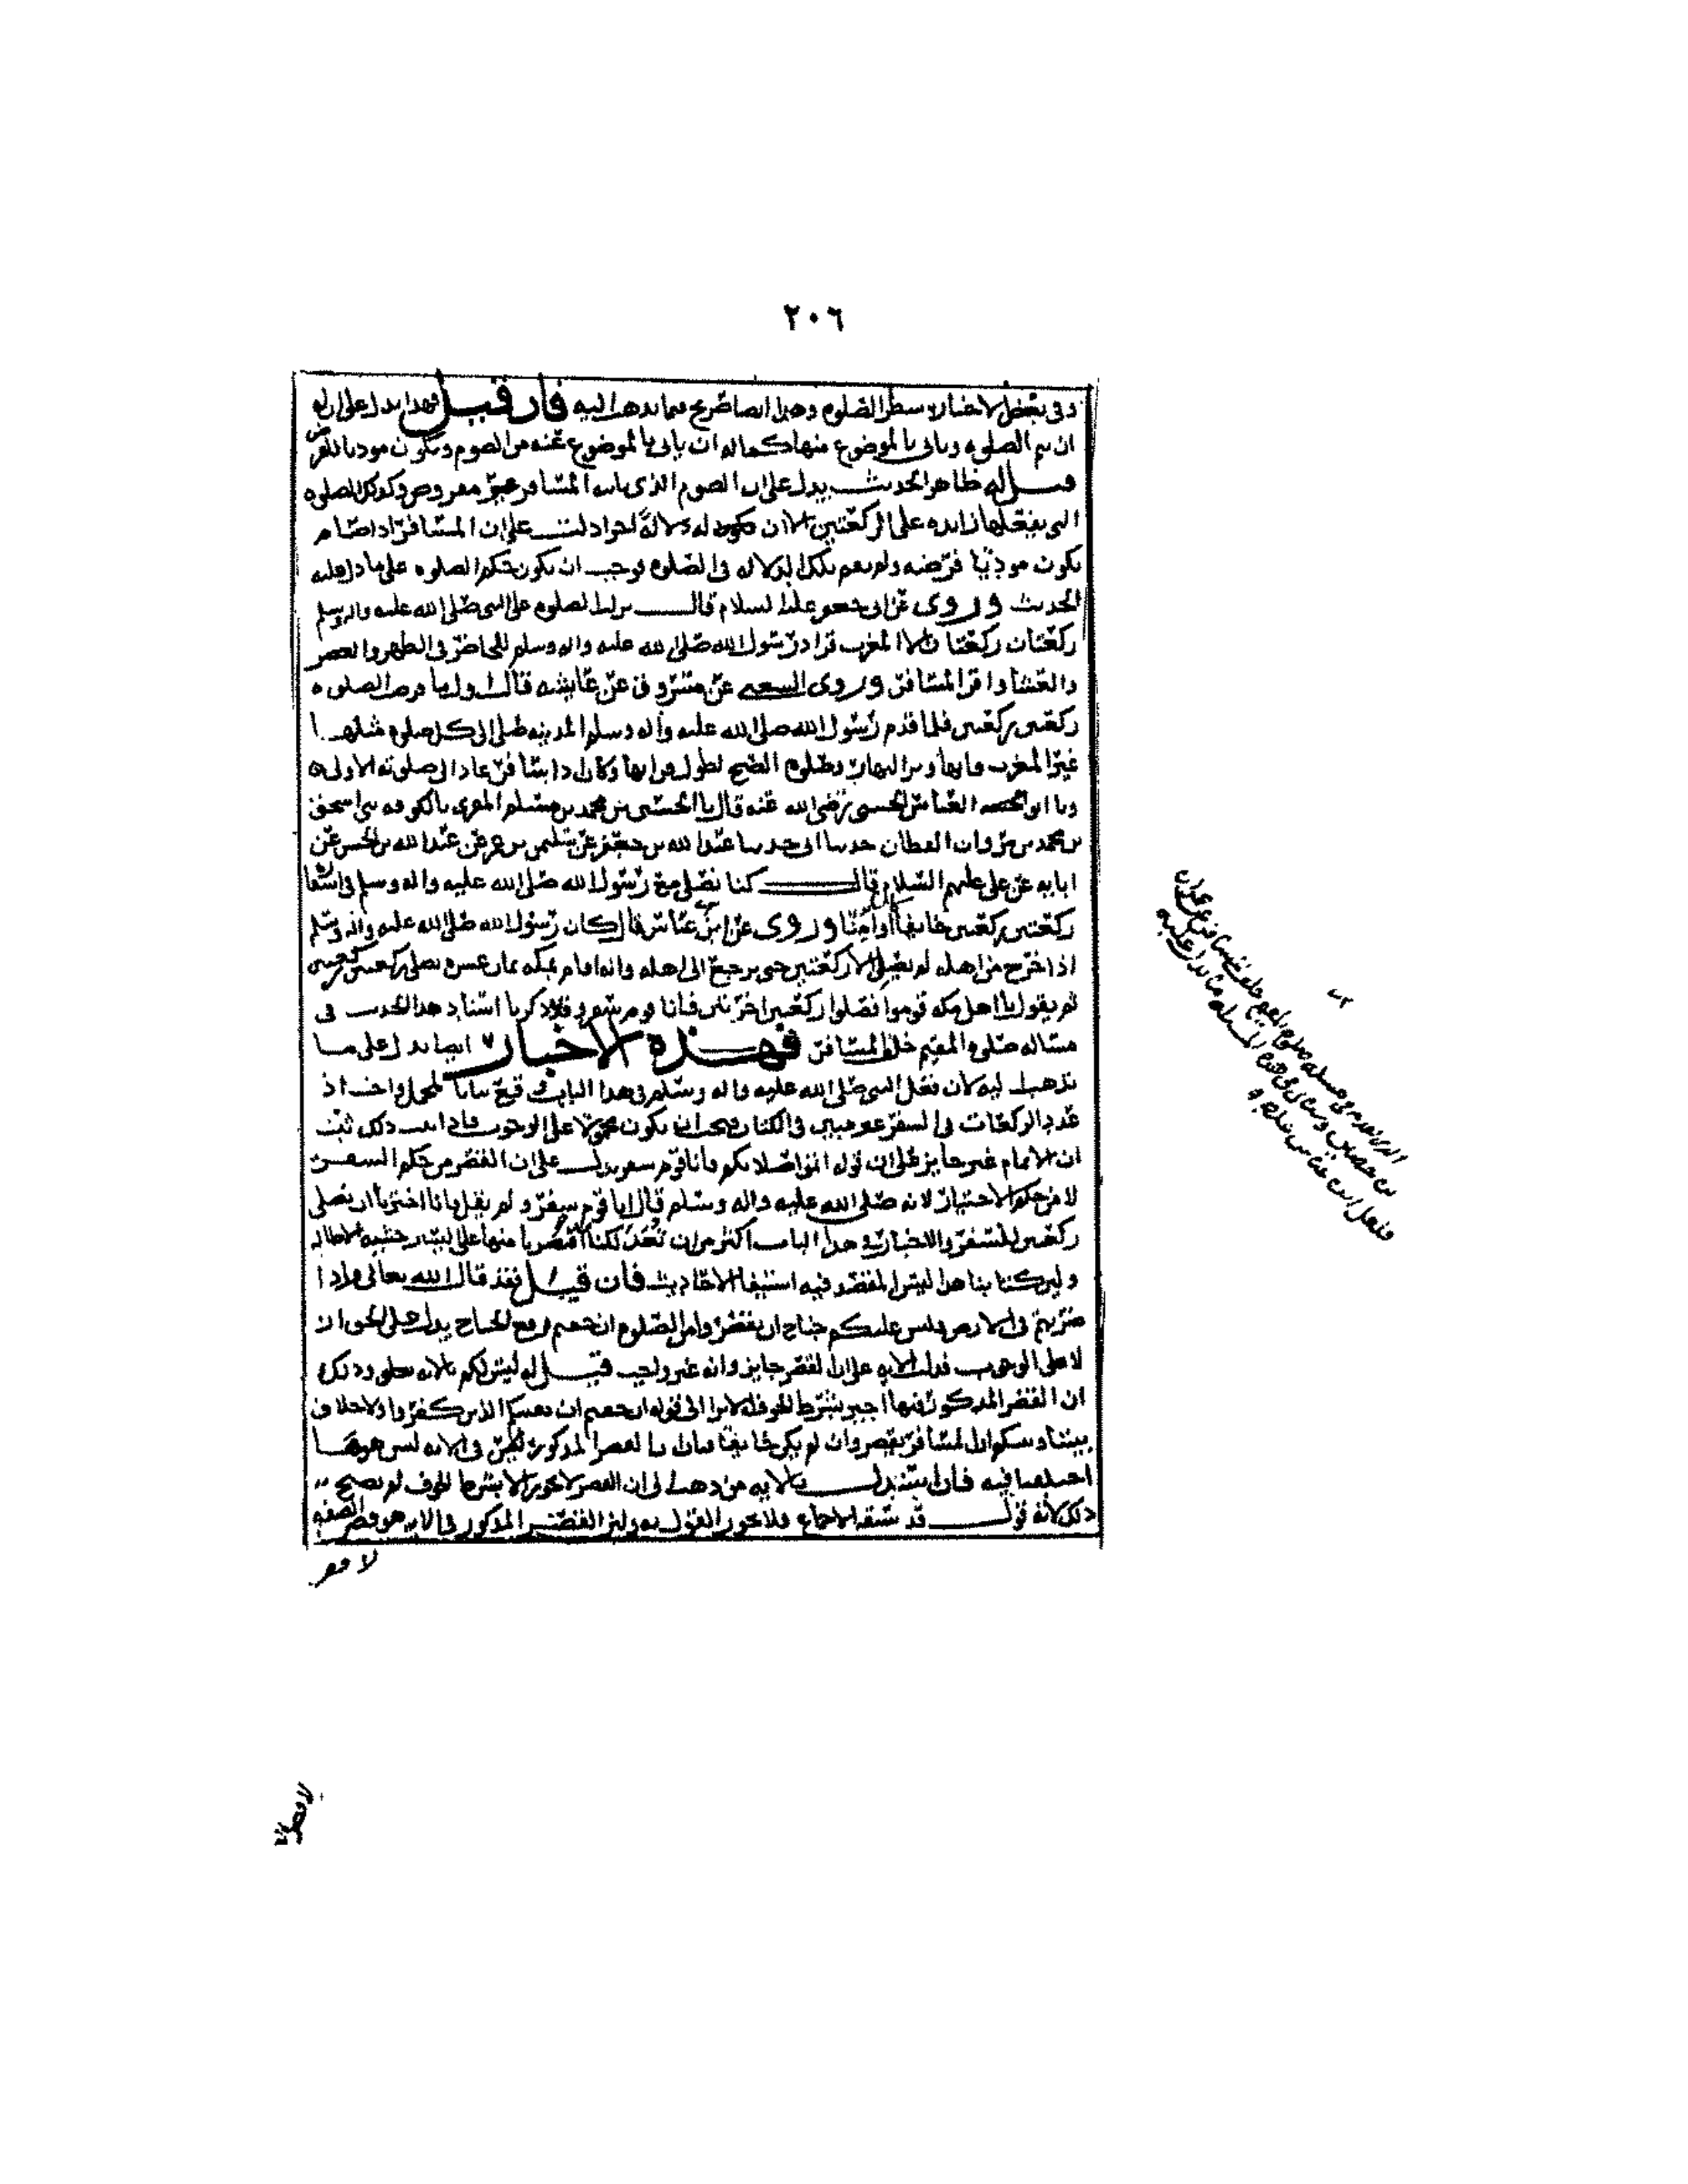 ٢٠٦
وفي بعض الاخبار شطر الصلوة وهذا ايضا صريح فيما نذهب اليه فان قيل فهذا يدل على ان له
ان يتم الصلوه وياتي بالموضوع منها كما له ان ياتي بالموضوع عنه من الصوم ويكون موديا للفرض
قيل له ظاهر الحديث يدل على ان الصوم الذي ياتيه المسافر غير مفروض وكذلك الصلوه
التي يفعلها زايده على الركعتين الا ان تكون له دلاله اخرا دلت على ان المسافر اذا صام
يكون موديا فرضه ولم تقم تلك الدلاله في الصلوه فوجب ان يكون حكم الصلوه على ما دل عليه
الحديث وروى عن ابي جعفر عليه السلام قال نزلت الصلوه على النبي صلى الله عليه واله وسلم
ركعتان ركعتان الا المغرب فزاد رسول الله صلى الله عليه واله وسلم للحاضر في الظهر والعصر
والعشا واقر المسافر وروى الشعبي عن مسروق عن عايشه قالت اول ما فرض الصلوه
ركعتين ركعتين فلما قدم رسول الله صلى الله عليه واله وسلم المدينه صلى الى كل صلوه مثلها
غير المغرب فانها وتر النهار وصلوه الصبح لطول قرانها وكان اذا سافر عاد الى صلوته الاولى
ونا ابو العباس الحسني رضي الله عنه قال نا الحسين بن محمد بن مسلم المقري بالكوفه نا اسحق
بن محمد بن مروان القطان حدثنا ابي حدثنا عبد الله بن جعفر عن سليمن بن عن عبد الله بن الحسن عن
ابايه عن علي عليهم السلام قال كنا نصلي مع رسول الله صلى الله عليه واله وسلم في اسفارنا
ركعتين ركعتين خايفا او امنا وروى عن ابن عباس قال كان رسول الله صلى الله عليه واله وسلم
اذا خرج من اهله لم يصل الا ركعتين حتى يرجع الى اهله وانه اقام بمكه ثمان عشره يصلي ركعتين ركعتين
ثم يقول يا اهل مكه قوموا فصلوا ركعتين اخرتين فانا قوم سفر وقد ذكرنا اسناد هذا الحديث في
مساله صلوه المقيم خلف المسافر فهذه الاخبار ايضا تدل على ما
نذهب اليه لان فعل النبي صلى الله عليه واله وسلم في هذا الباب وقع بيانا لمجمل واجب اذ
عدد الركعات في السفر غير مبين في الكتاب فيجب ان يكون محمولا على الوجوب فاذا ثبت ذلك ثبت
ان الاتمام غير جايز على ان قوله اتموا صلاتكم فانا قوم سفر يدل على ان القصر من حكم السفر
لا من حكم الاختيار لانه صلى الله عليه واله وسلم قال انا قوم سفر ولم يقل انا اخترنا ان نصلي
ركعتين للسفر والاخبار في هذا الباب اكثر من ان تعد لكنا اقتصرنا منها على اليسير خشيه الاطاله
وليس كتابنا هذا ليس المقصد فيه استيفا الاحاديث فان قيل فقد قال الله تعالى واذا
ضربتم في الارض فليس عليكم جناح ان تقصروا من الصلوة ان خفتم ورفع الجناح يدل على الجواز
لا على الوجوب فدلت الايه على ان القصر جايز وانه غير واجب قيل له ليس لكم بالايه تعلق وذلك
ان القصر المذكور فيها اجيز بشرط الخوف الا ترا الى قوله ان خفتم ان يفتنكم الذين كفروا ولا خلاف
بيننا وبينكم ان المسافر يقصر وان لم يكن خايفا فبان ان القصر المذكور في الايه ليس هو ما
اختلفنا فيه فان استدل بالايه من ذهب الى ان القصر لا يجوز الا بشرط الخوف لم يصح
ذلك لانه قول قد سبقه الاجماع فلا يجوز القول به وليس القصر المذكور في الايه هو قصر الصفه
لا قصر